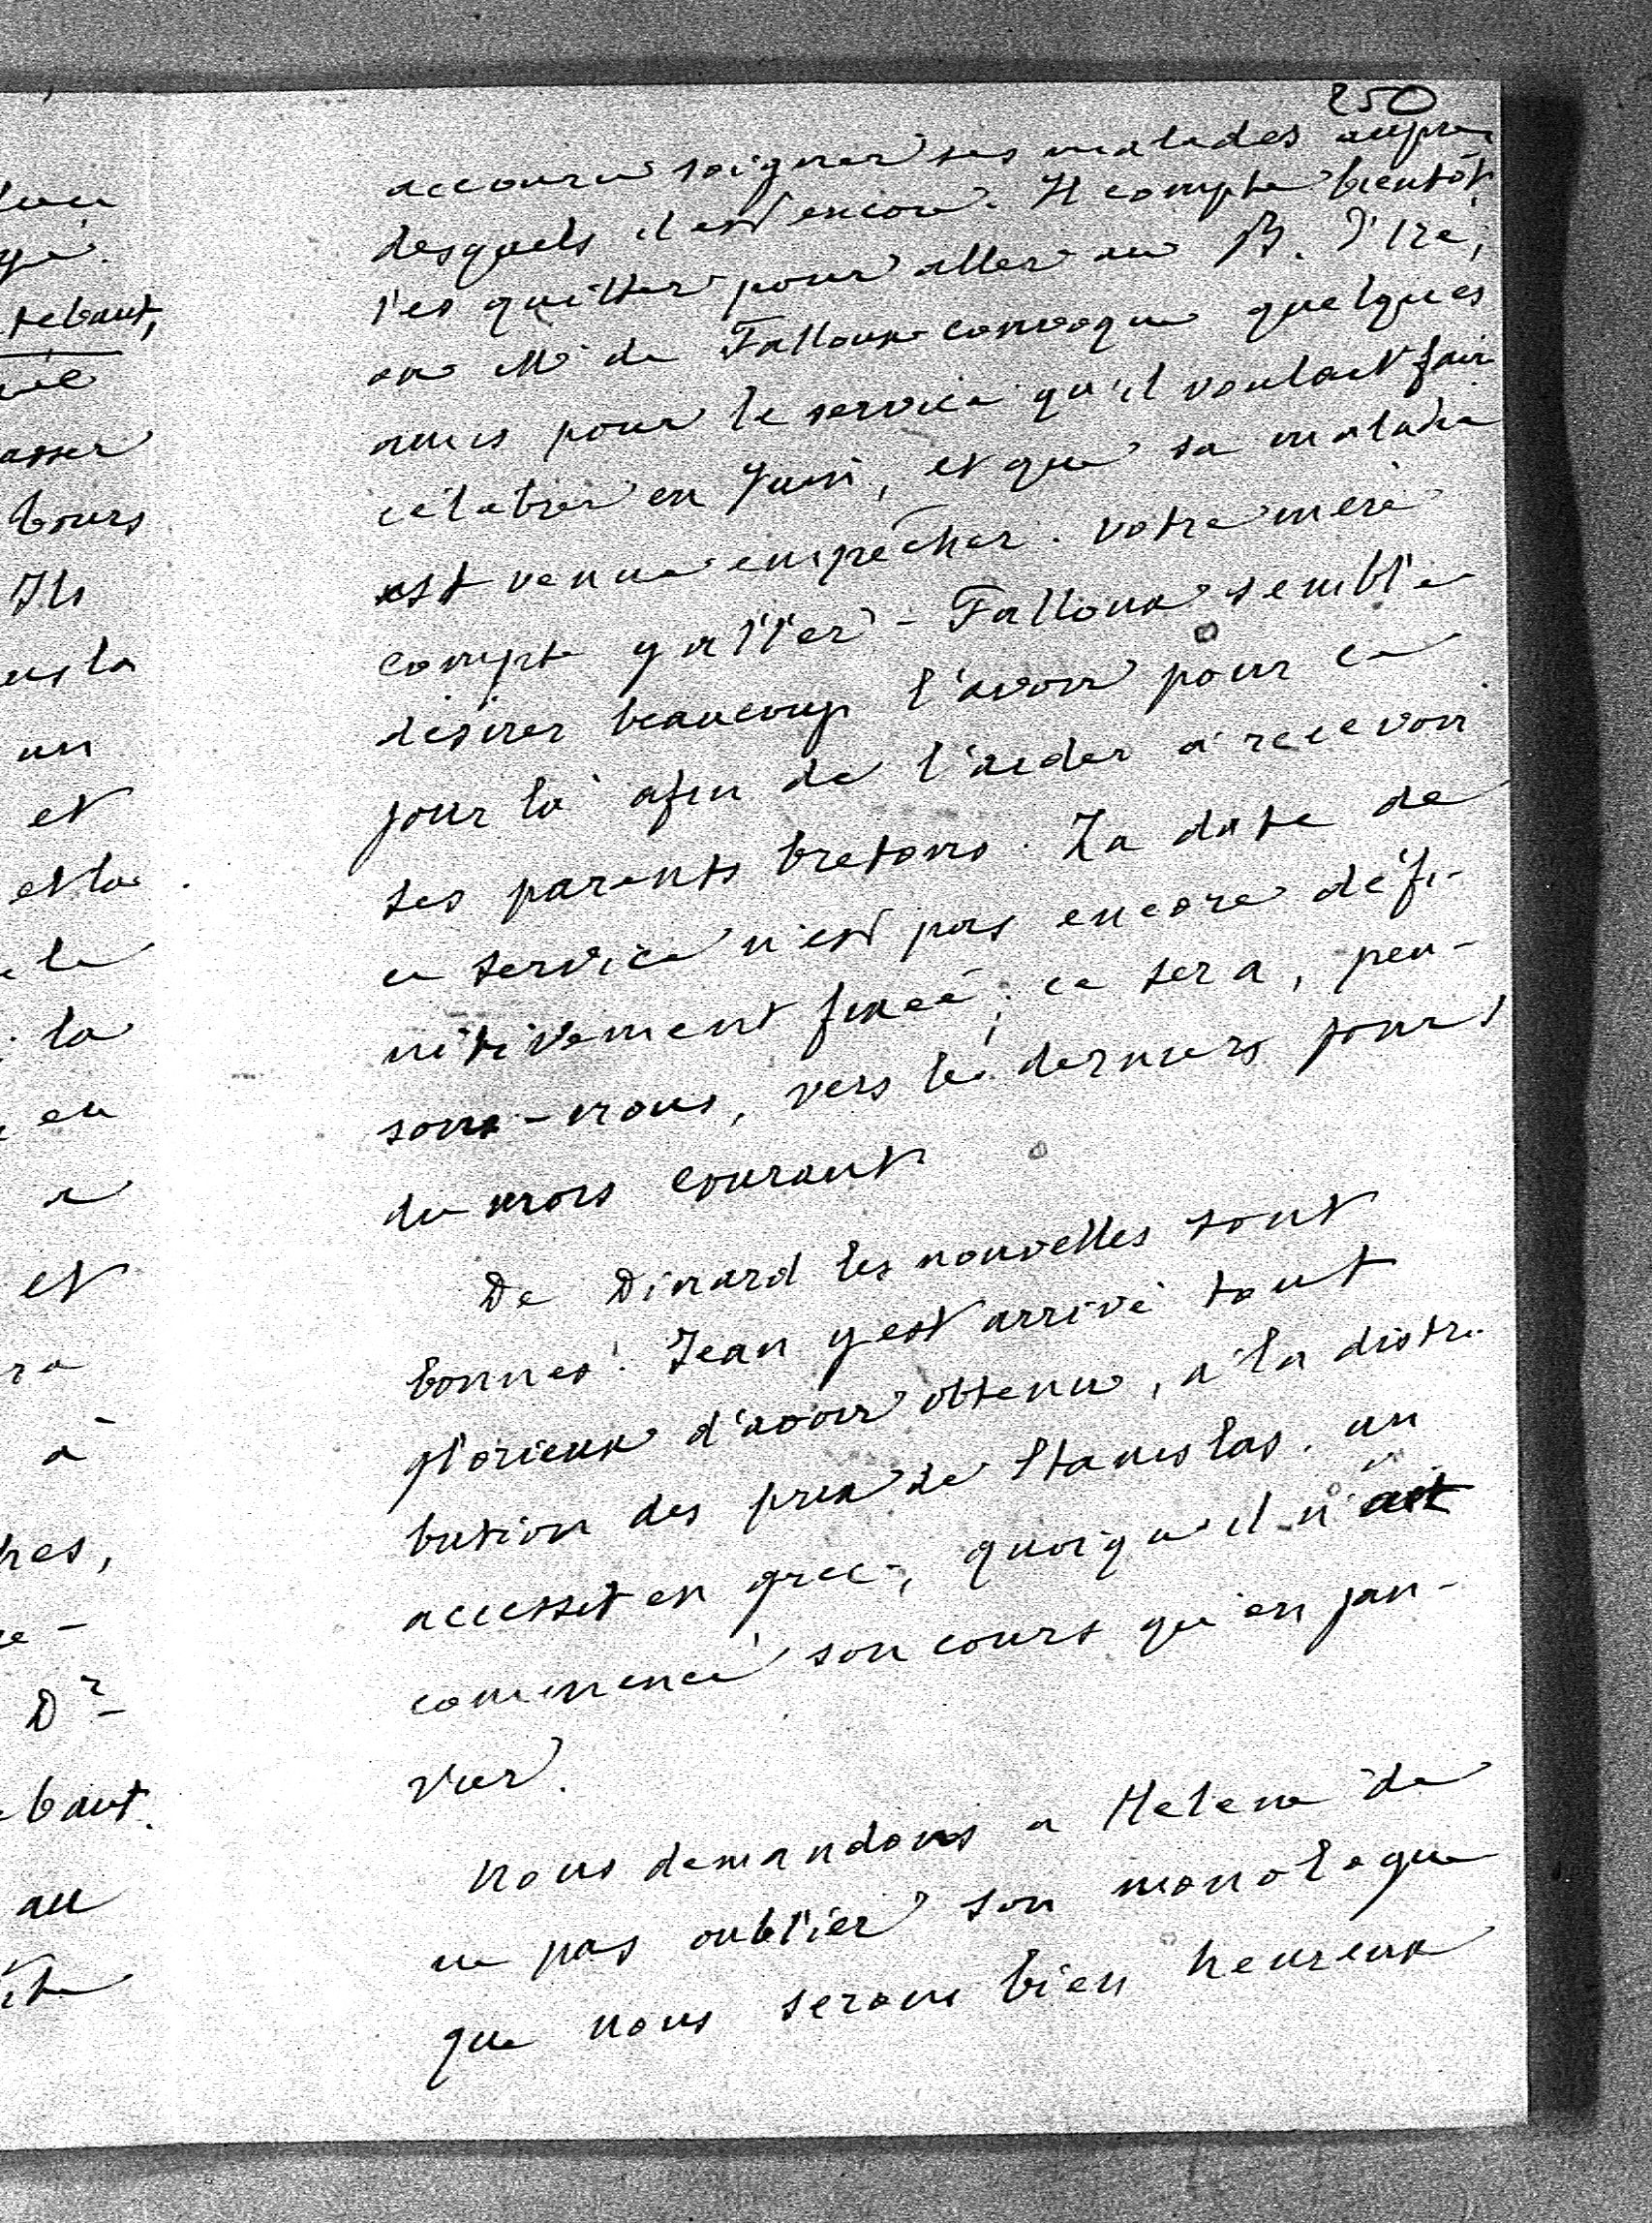 250
accouru soigner ses malades auprès
desquels il est encore. Il compte bientôt
les quitter pour aller au B. d'Iré,
où Mr de Falloux convoque quelques
amis pour le service qu'il voulait faire
célébrer en Juin, et que sa maladie
est venue empêcher. Votre mère
compte y aller - Falloux semble
désirer beaucoup l'avoir pour ce
jour là afin de l'aider à recevoir
ses parents bretons. La date de
ce service n'est pas encore défi-
nitivement fixée; ce sera, pen-
sons-nous, vers les derniers jours
du mois courant
De Dinard les nouvelles sont
bonnes. Jean y est arrivé tout
glorieux d'avoir obtenu, à la distri-
bution des prix de Stanislas, un
accessit en grec, quoiqu'il n'ait
commencé son cours qu'en jan-
vier.
Nous demandons a Helene de
ne pas oublier son monologue
que nous serons bien heureux
tebaut,
asser
bours
Ils
us la
un
et
et la
la
la
en
a
et
ra
à
hes,
Dr
baut.
au